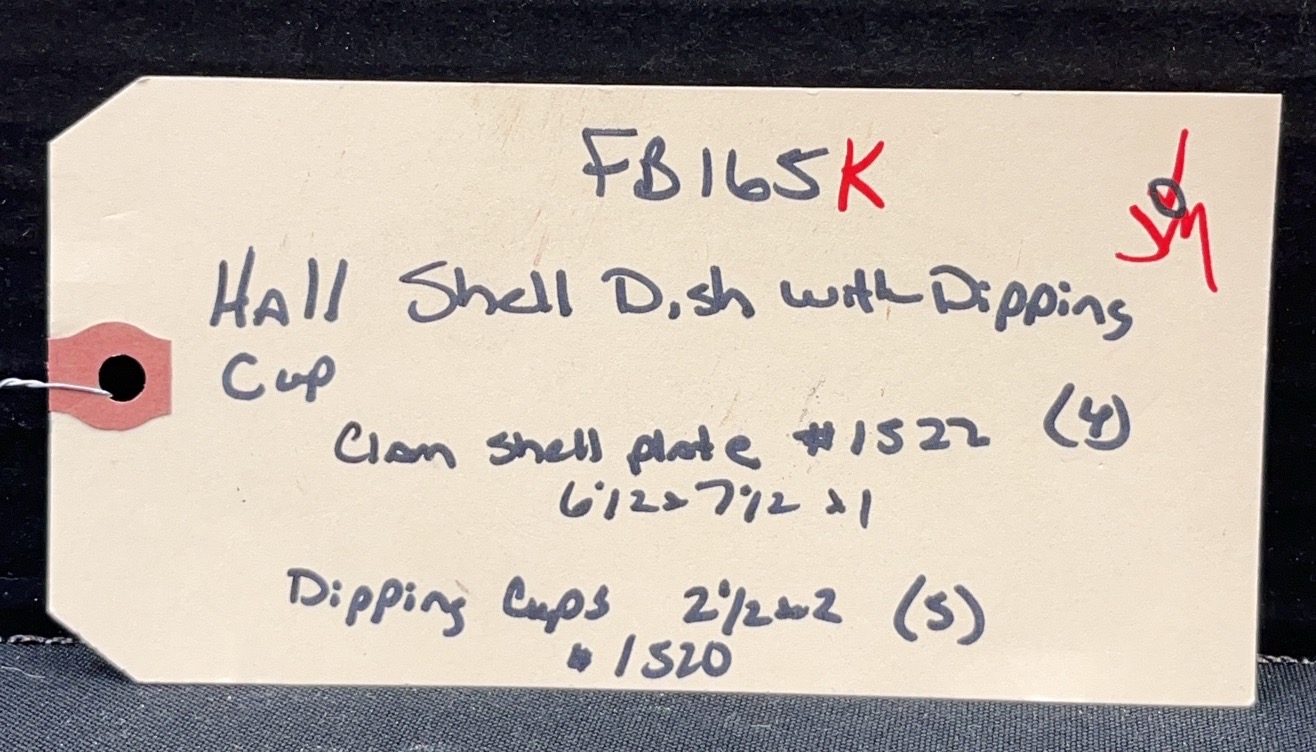 FB165K
Hall Shell Dish with Dipping
Cup
Clam shell plate #1522 (4)
6 1/2 x 7 1/2 x 1
Dipping Cups 2 1/2 x 2 (5)
#1520